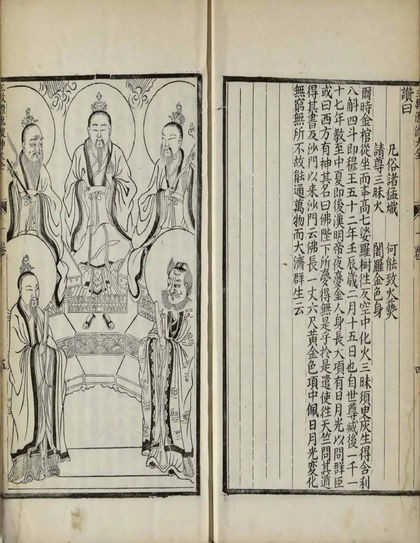 讚曰
凡俗諸猛熾　何能致火爇
請尊三昧火　闍羅金色身
爾時金棺從坐而舉高七娑羅樹往反空中化火三昧須臾灰生得舍利
八斛四斗即穆王五十二年壬辰歲二月十五日也自世尊滅後一千一
十七年教至中夏即後漢明帝夜夢金人身長大項有日月光以問群臣
或曰西方有神其名曰佛陛下所夢得無是乎於是遣使往天竺問其道
得其書及沙門以來沙門云佛長一丈六尺黃金色項中佩日月光變化
無窮無所不故能通萬物而大濟群生云